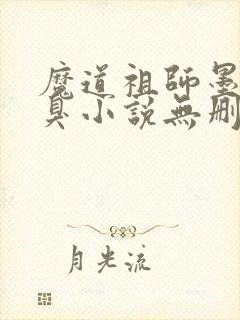 魔道祖師墨
臭小說無刪
月光流